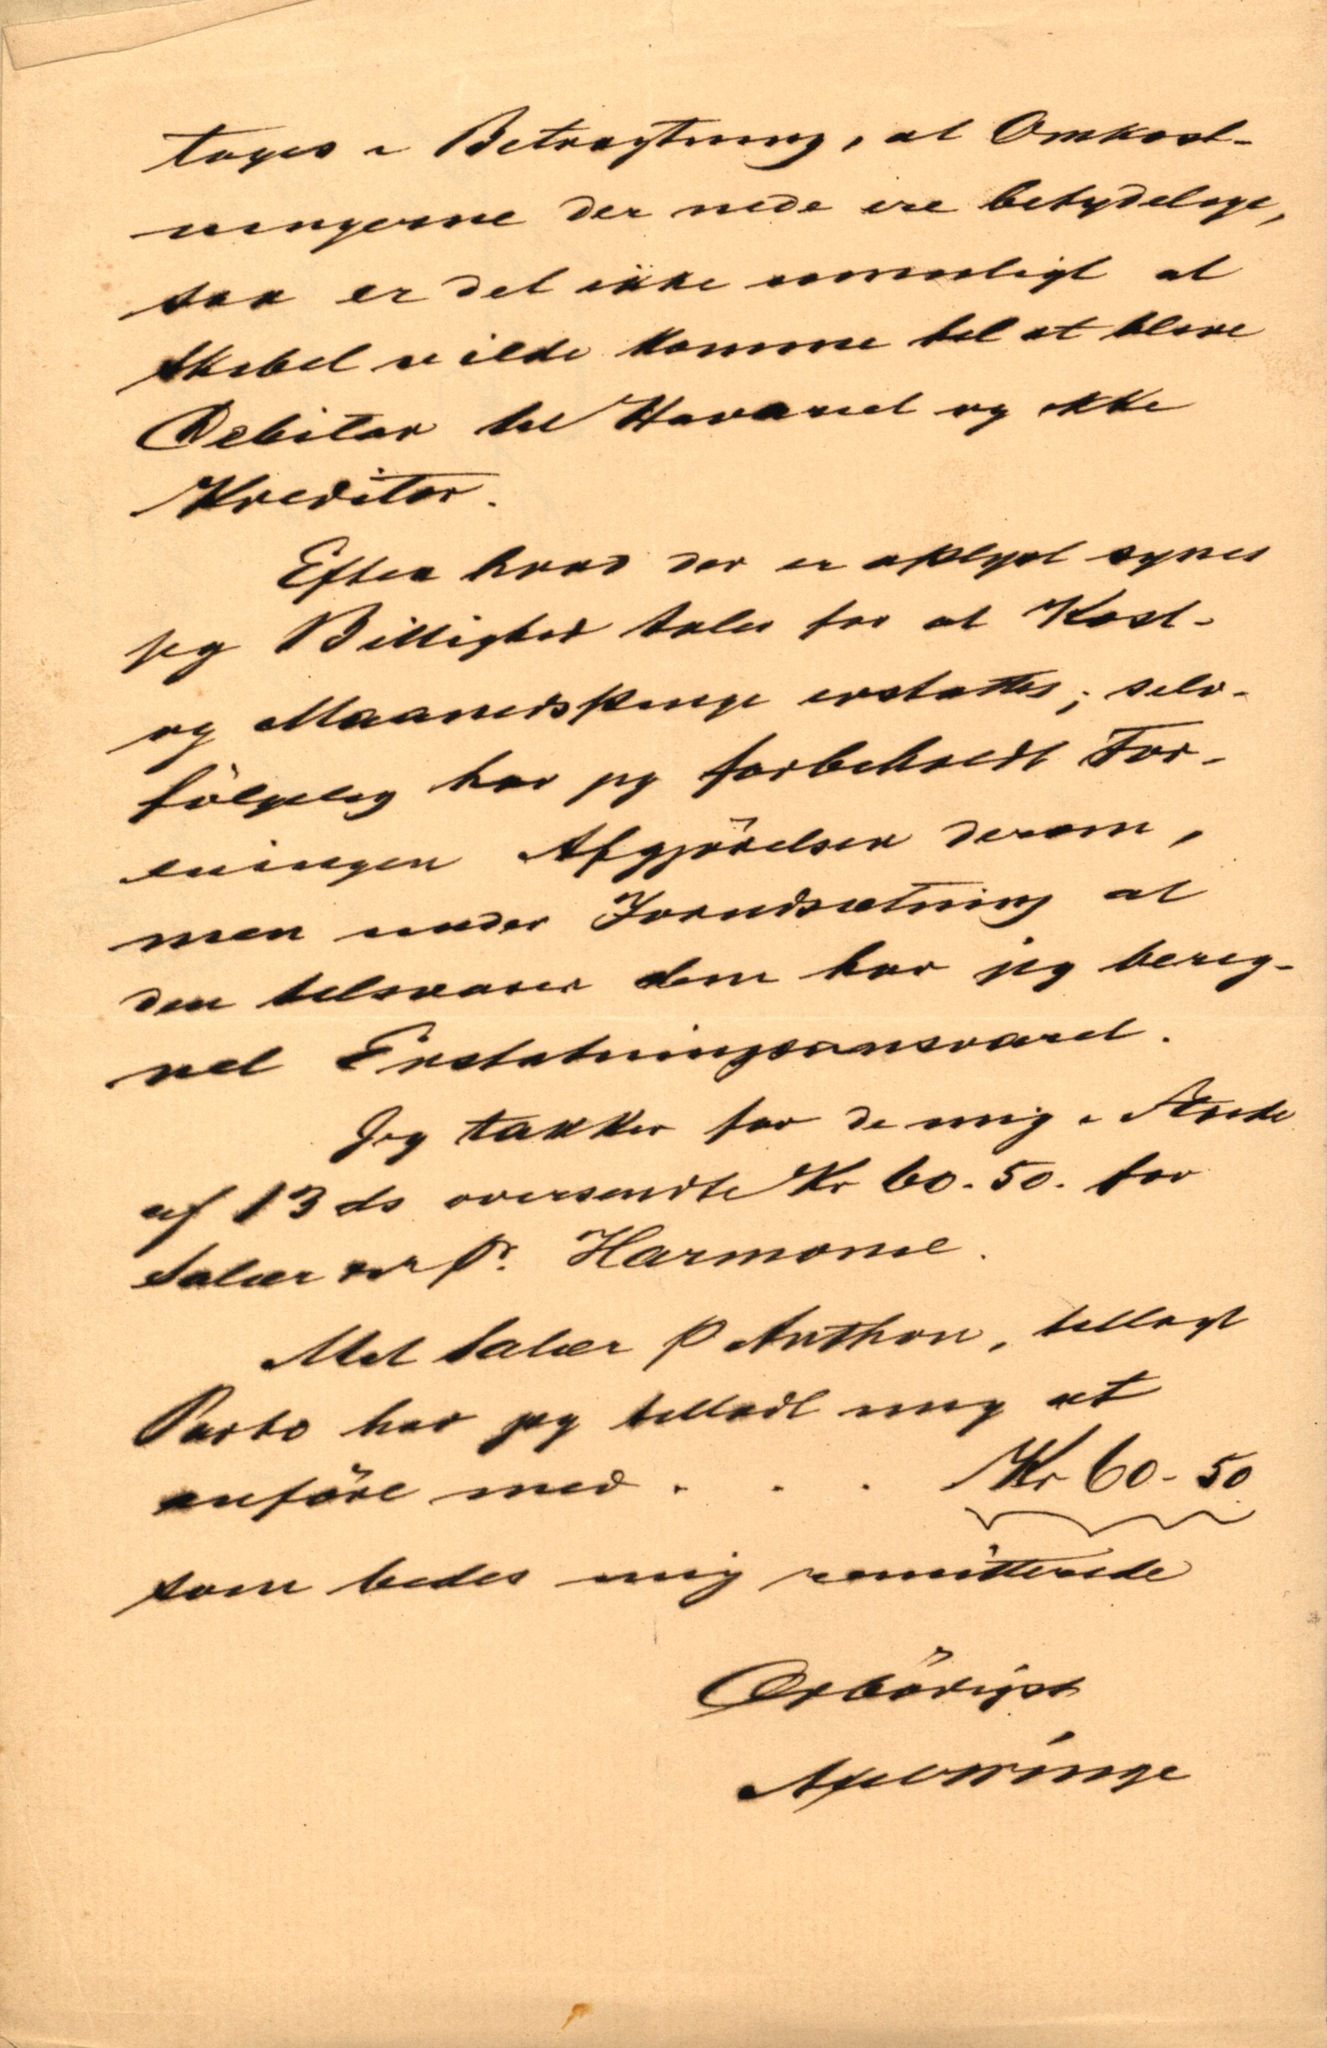 tages i Betragtning, at Omkost-
ningerne der nede ere betydelige,
saa er det ikke umuligt at
Skibet vilde komme til at blive
Debitor til Havariet og ikke
Kreditor.
Efter hvad der er oplyst synes
jeg Billighed taler for at Kost-
og Maanedspenge erstattes; selv-
følgelig har jeg forbeholdt For-
eningen Afgjörelsen derom,
men under Forudsætning at
den tilsvarer dem har jeg bereg-
net Erstatningsansvaret.
Jeg takker for de mig i Ærede
af 13 ds oversendte Kr 60.50. for
Salær pr. Harmonie.
Mit Salær p Anthon, tillagt
Porto har jeg tilladt mig at
anföre med . . . Kr 60-50
som bedes mig remitterede
Ærbödigst
Axel Winge